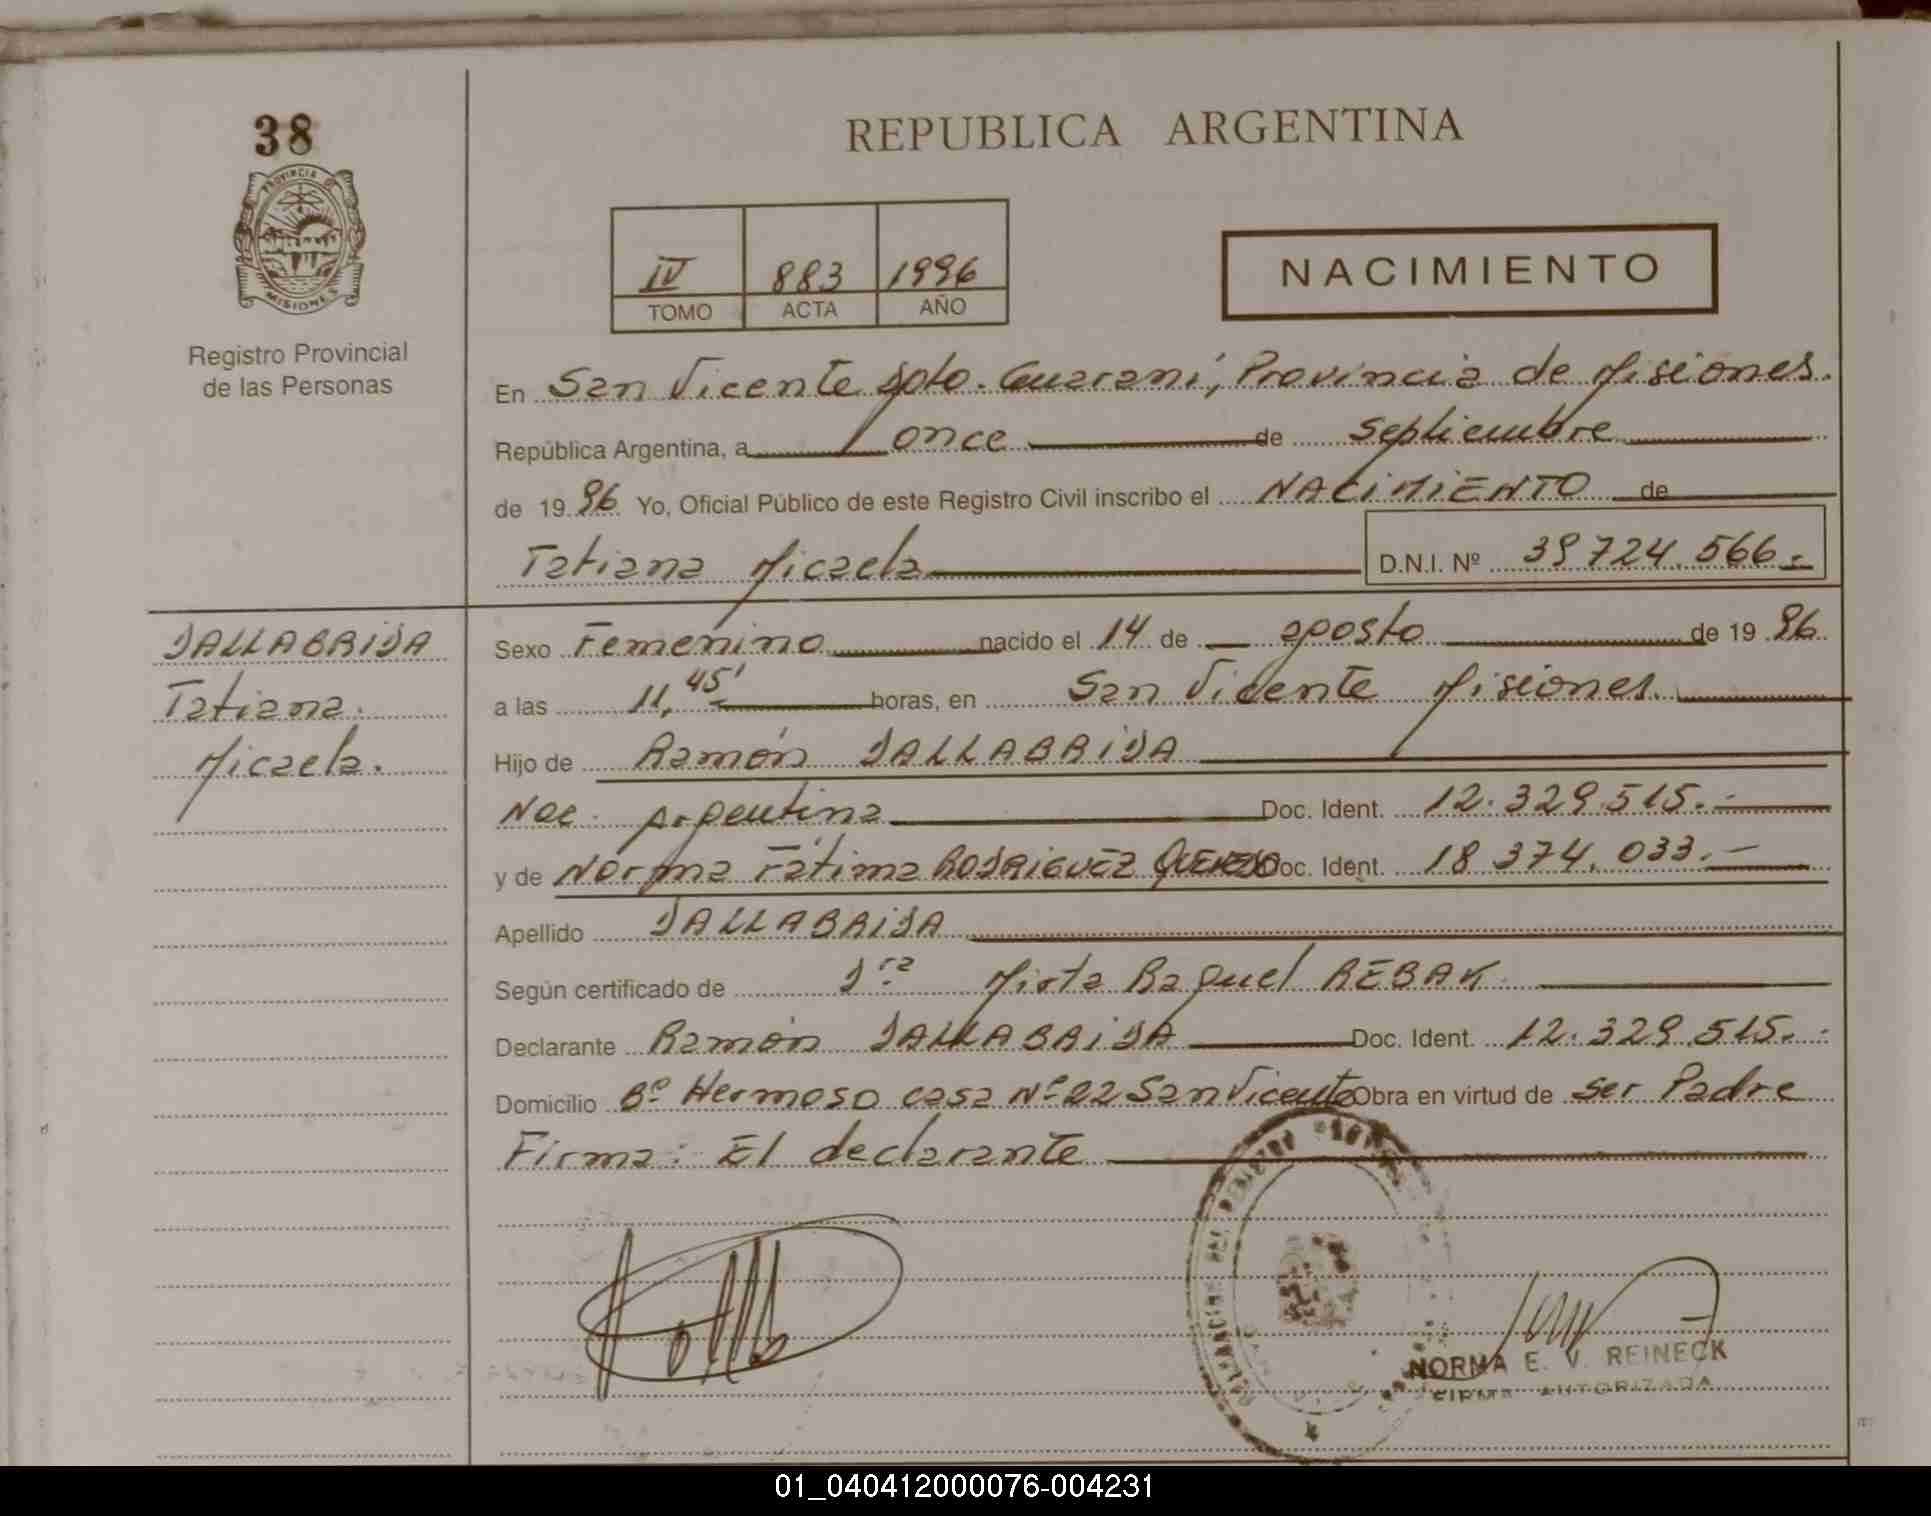 38
PROVINCIA DE
MISIONES
Registro Provincial
de las Personas
REPUBLICA ARGENTINA
IV 883 1996
TOMO ACTA AÑO
NACIMIENTO
En San Vicente Dpto. Guaraní, Provincia de Misiones.
República Argentina, a once de septiembre
de 1996 Yo, Oficial Público de este Registro Civil inscribo el NACIMIENTO de
Tatiana Micaela D.N.I. Nº 39724.566.-
DALLABRIDA
Tatiana
Micaela.
Sexo Femenino nacido el 14 de agosto de 1996
a las 11,45' horas, en San Vicente Misiones.
Hijo de Ramón DALLABRIDA
Nac. Argentina Doc. Ident. 12.329.515.-
y de Norma Fátima RODRIGUEZ Doc. Ident. 18.374.033.-
Apellido DALLABRIDA
Según certificado de Dra Mirta Raquel REBAK
Declarante Ramón DALLABRIDA Doc. Ident. 12.329.515.-
Domicilio Bº Hermoso casa Nº 22 San Vicente Obra en virtud de ser Padre
Firma: El declarante
NORMA E. V. REINECK
FIRMA AUTORIZADA
01_040412000076-004231